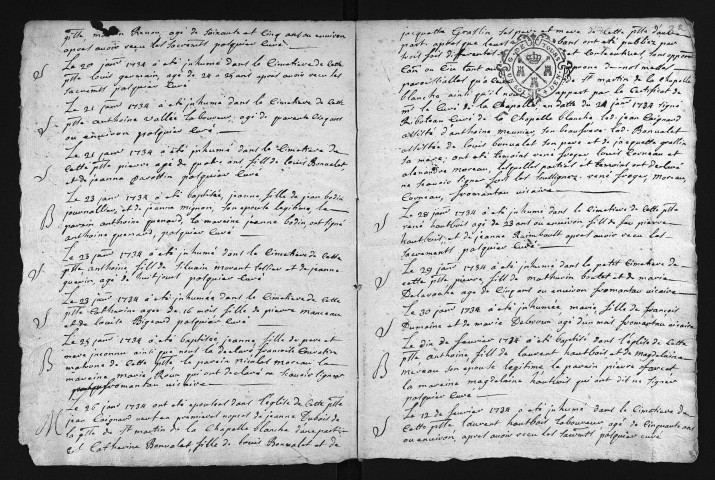 ptte martin Renou agé de soixante et Cinq ans ou environ
apres avoir recu les sacrements poliquier Curé
S Le 20 janr 1734 a été inhumé dans le Cimetiere de Cette
ptte louis germain, agé de 24 a 25 ans apres avoir recu les
sacrements poliquier Curé
Le 21 janr 1734 a été inhumé dans le Cimetiere de Cette
S ptte anthoine vallée laboureur, agé de
ou environ poliquier Curé
Le 21 janr 1734 a été inhumé dans le Cimetiere de
S Cette ptte pierre agé de sept ans fils de louis Bonvalet,
et de jeanne poliquier Curé
Le 23 janr 1734 a été baptisée, jeanne fille de jean bodin
B journallier, et de jeanne mignon, son epouse legitime, le
parain anthoine guenard, la maraine jeanne bodin, ont signé
anthoine guenard, poliquier Curé
Le 23 janr 1734 a été inhumé dans le Cimetiere de Cette
S ptte anthoine fils de silvain morant sellier et de jeanne
guerin, agé de huit jours poliquier Curé
Le 23 janr 1734 a été inhumée dans le Cimetiere de Cette
S ptte Catherine agée de 16 mois fille de pierre manceau
et de louise Bigeard poliquier Curé
Le 25 janr 1734 a été baptisée jeanne fille de pere et
B mere jnconnu ainsi que nous l'a declaré francoise
matrone de Cette ptte le parain nicolas moreau la
maraine marie Roux qui ont declaré ne scavoir signer
fromantau vicaire
Le 26 janr 1734 ont été epousés dans l'eglise de Cette ptte
M jean Coignard veuf en premieres nopces de jeanne Dubois de
la ptte de St martin de la Chapelle blanche d'une part
et Catherine Bonvalet, fille de louis Bonvalet et de
jacquette Graslin, ses pere et mere de Cette ptte d'autre
part, apres que leurs bans ont été publiés par
trois fois et Consecutives sans oppon
de notre messe
paroissialle qu'a Celle de St martin de la chapelle
blanche ainsi qu'il nous a apparu par le Certificat de
mr le Curé de la Chapelle en datte du 24 janr 1734 signé
Curé de la Chapelle blanche led. jean Coignard
assisté d'anthoine meunier son beaufrere lad. Bonvalet
assistée de louis bonvalet son pere et de jacquette graslin
sa mere, ont été temoins rené froger, louis Corneau,
alexandre moreau, lesquelles parties et temoins ont declaré
ne scavoir signer fors les soussignez. rené froger, moreau,
Corneau, fromantau vicaire
Le 28 janr 1734 a été inhumé dans le Cimetiere de Cette ptte
S rené hautbois agé de 23 ans ou environ fils de feu pierre
hautbois, et de jeanne Raimbault apres avoir recu les
sacrements poliquier Curé
Le 29 janr 1734 a été inhumé dans le petit Cimetiere de
S Cette ptte pierre, fils de mathurin boutet et de marie
Delavache agé de Cinq ans ou environ fromantau vicaire
Le 30 janr 1734 a été inhumée marie fille de françois
S Dumaine et de marie Delavau agée d'un mois fromantau vicaire
Le dix de fevrier 1734 a été baptisé dans l'eglise de Cette
B ptte anthoine fils de laurent hautbois et de magdelaine
moreau son epouse legitime le parain pierre
la maraine magdelaine hautbois qui ont dit ne signer
poliquier Curé
Le 12 de fevrier 1734 a été inhumé dans le Cimetiere de
S Cette ptte laurent hautbois laboureur agé de Cinquante ans
ou environ, apres avoir recu les sacrements poliquier curé